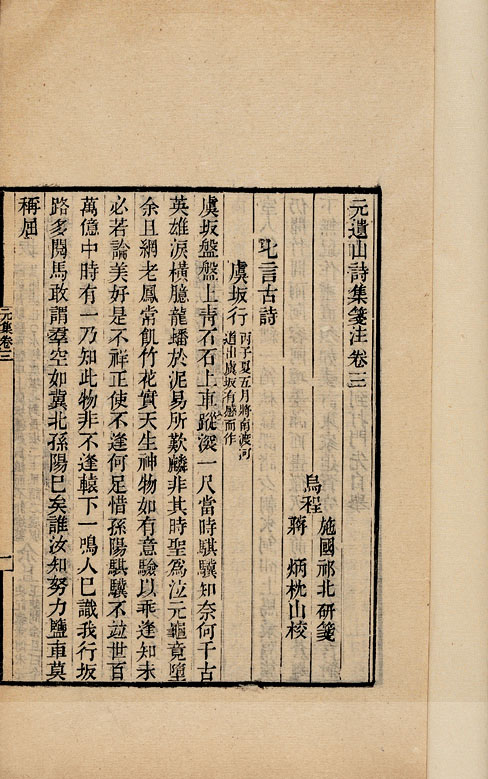 元遺山詩集箋注卷三
烏程
施國祁北研箋
蔣　炳枕山校
七言古詩
虞坂行
丙子夏五月將南渡河
道出虞坂有感而作
虞坂盤盤上青石石上車蹤深一尺當時騏驥知奈何千古
英雄淚橫臆龍蟠於泥易所歎麟非其時聖為泣元龜竟墮
余且網老鳳常飢竹花實天生神物如有意驗以乖逢知未
必若論美好是不祥正使不逢何足惜孫陽騏驥不竝世百
萬億中時有一乃知此物非不逢轅下一鳴人已識我行坂
路多閱馬敢謂羣空如冀北孫陽已矣誰汝知努力鹽車莫
稱屈
元集卷三
一